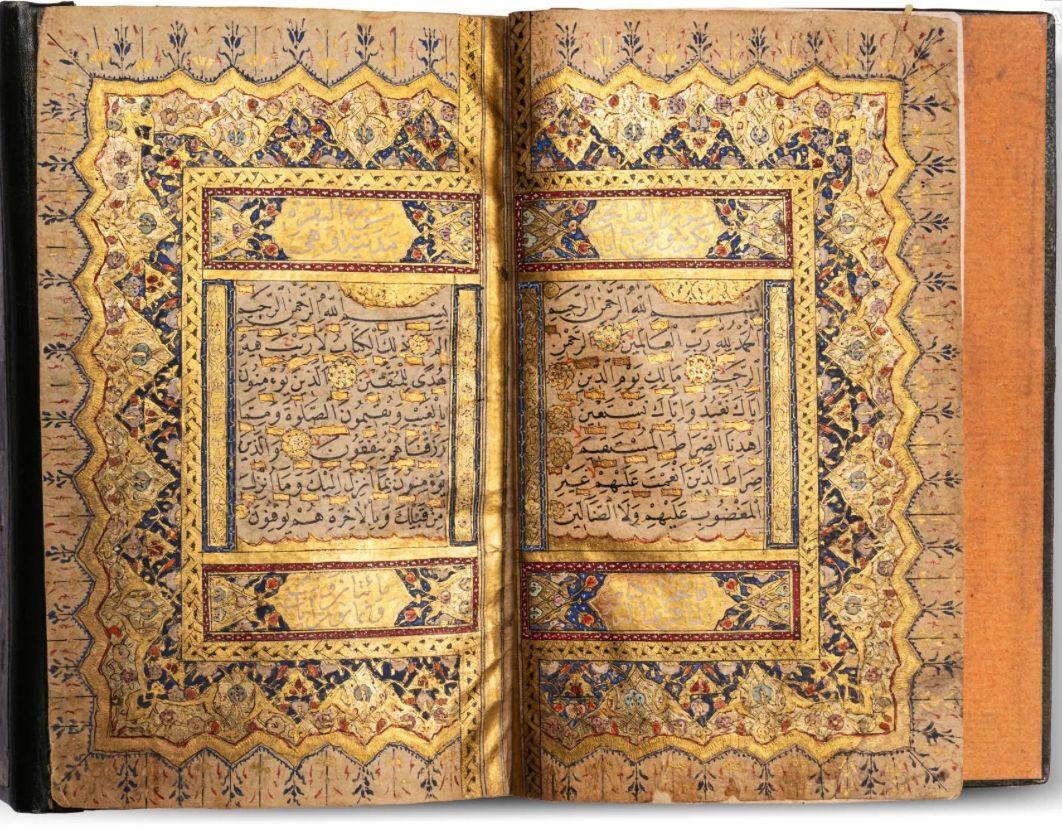 سورة الفاتحة
بسم الله الرحمن الرحيم
الحمد لله رب العالمين الرحمن
الرحيم مالك يوم الدين
اياك نعبد واياك نستعين
اهدنا الصراط المستقيم
صراط الذين انعمت عليهم غير
المغضوب عليهم ولا الضالين
سورة البقرة
مدنية وهي
بسم الله الرحمن الرحيم
الم ذلك الكتاب لا ريب فيه
هدى للمتقين الذين يؤمنون
بالغيب ويقيمون الصلوة ومما
رزقناهم ينفقون والذين
يؤمنون بما انزل اليك وما انزل
من قبلك وبالاخرة هم يوقنون